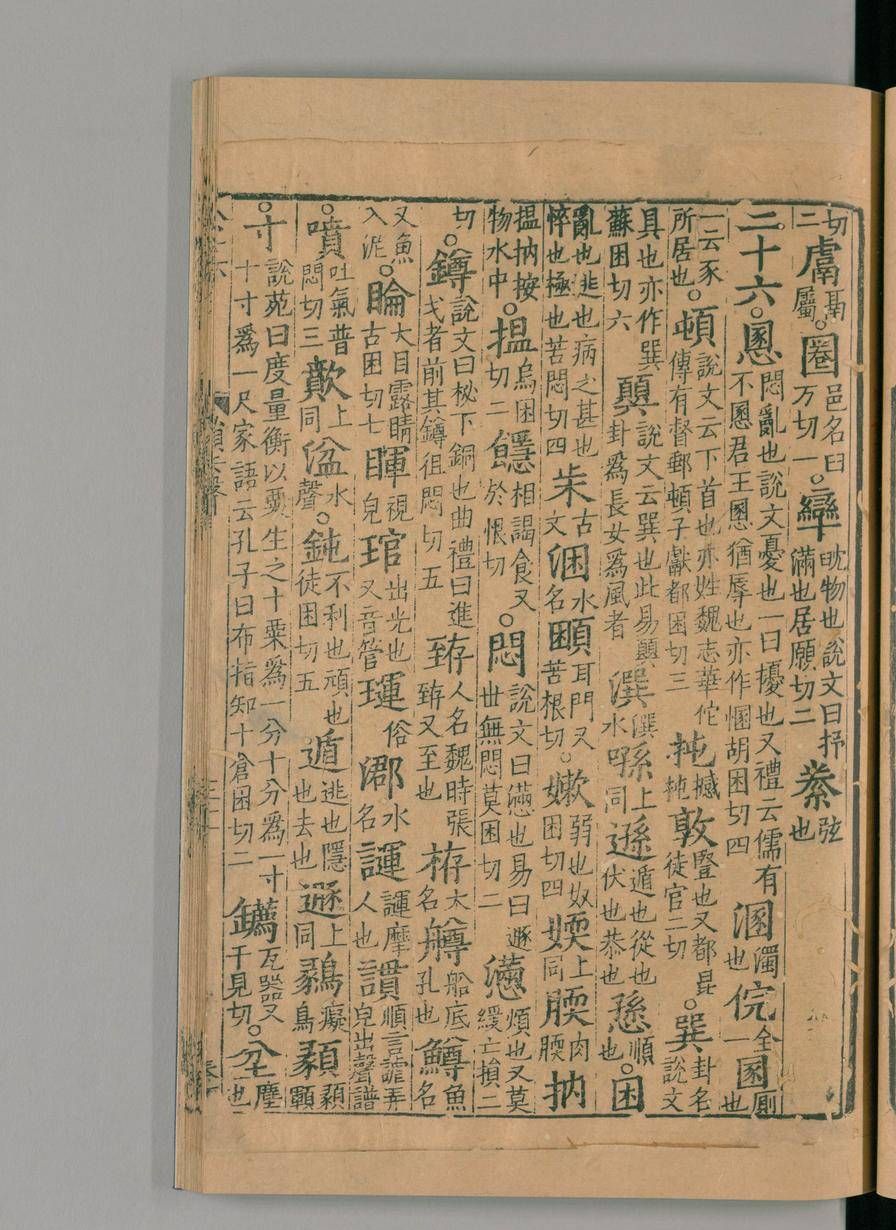 切二鬳鬲屬○圈邑名臼万切一○攣㪺物也說文曰抒滿也居願切二絭弦也
二十六○慁悶亂也說文憂也一曰擾也又禮云儒有不慁君王慁猶辱也亦作㥵胡困切四溷濁也俒全一圂廁也
一云豕所居也○頓說文云下首也亦姓魏志華佗傳有督郵頓子獻都困切三扽撼扽敦豎也又都昆徒官二切○巽卦名說文
具也亦作㢲蘇困切六顨說文云巽也此易顨卦爲長女爲風者潠潠水上同遜遁也從也伏也恭也愻順也○困
亂也逃也病之甚也悴也極也苦悶切四古文涃水名耳門又苦根切○嫩弱也奴困切四媆上同腝肉腝抐
揾抐按物水中○揾烏困切二相謁食又於恨切○悶說文曰懣也易曰遯世無悶莫困切二懣煩也又莫緩亡損二
切○鐏說文曰柲下銅也曲禮曰進戈者前其鐏徂悶切五臶人名魏時張臶又至也栫木名船底孔也鱒魚名
又魚入泥○睔大目露睛古困切七睴視皃琯出光也又音管璭俗水名諢諢摩人也謴順言謔弄皃出聲譜
○噴吐氣普悶切三歕上同湓水聲○鈍不利也頑也徒困切五遁逃也隱也去也遯上同鶨癡鳥
○寸說苑曰度量衡以粟生之十粟爲一分十分爲一寸十寸爲一尺家語云孔子曰布指知十倉困切二瓦器又千見切○坌塵也